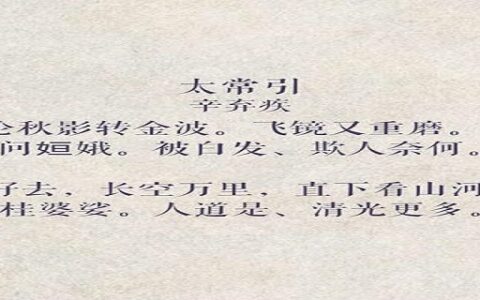 太常引
辛弃疾
秋影转金波。飞镜又重磨。
问姮娥。被白发、欺人奈何。
好去,长空万里,直下看山河
桂婆娑。人道是、清光更多。